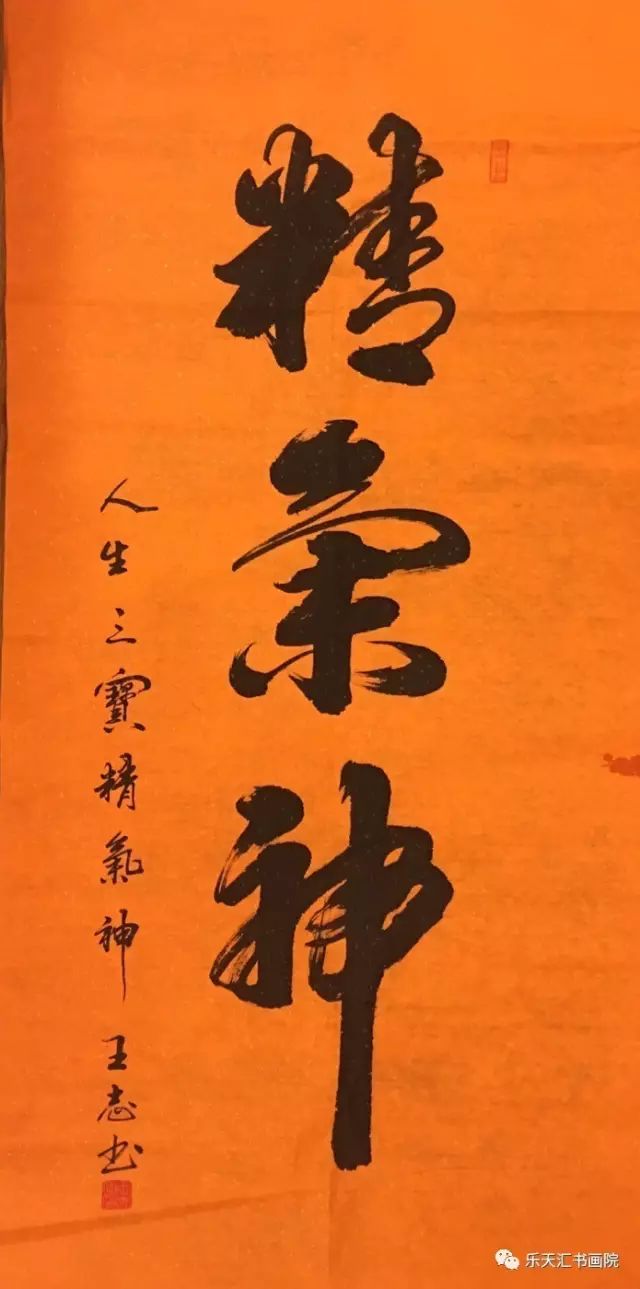 精氣神
人生三寶精氣神 王志书
乐天汇书画院